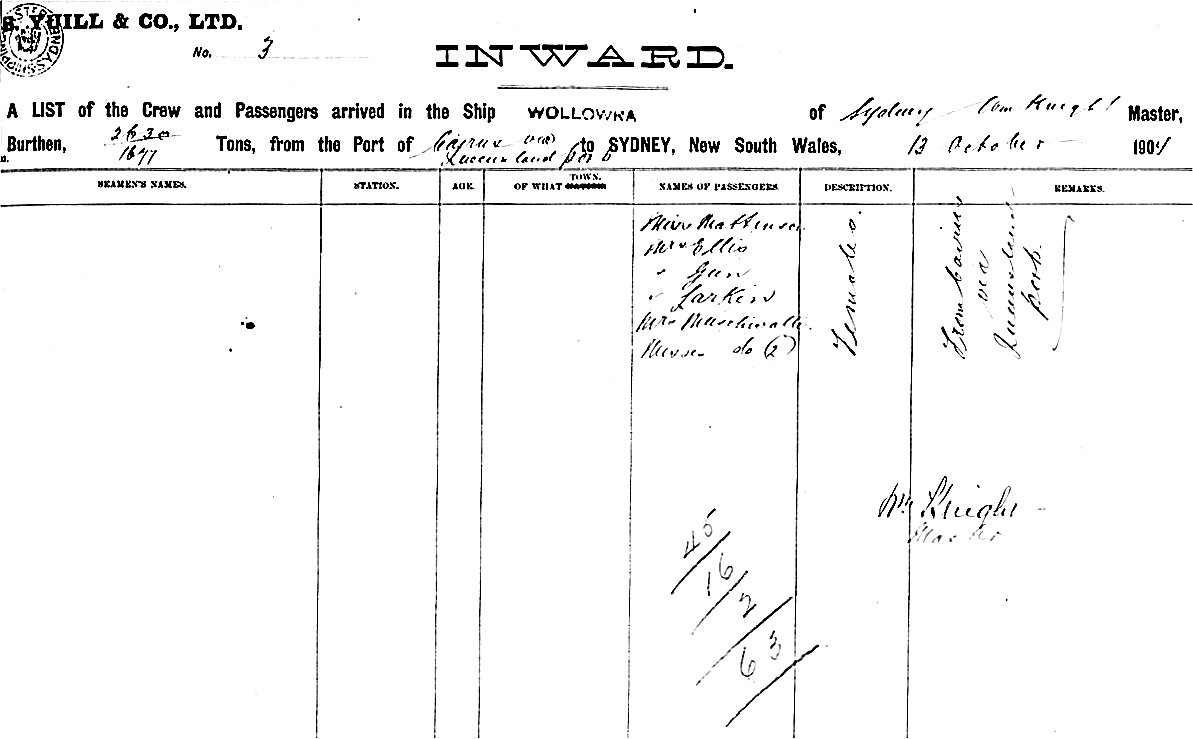 S. YUILL & CO., LTD.
No. 3
INWARD.
A LIST of the Crew and Passengers arrived in the Ship WOLLOWRA of Sydney Wm Knight Master,
Burthen, 2630/1677 Tons, from the Port of Cairns via Queensland ports to SYDNEY, New South Wales, 13 October 1904
SEAMEN'S NAMES. STATION. AGE. OF WHAT TOWN. NAMES OF PASSENGERS. DESCRIPTION. REMARKS.
Miss
Mrs Ellis
" Gun
" Larkin
Mrs
Misses do (2)
Females
From Cairns
via
Queensland
ports
Wm Knight
Master
45
16
2
63